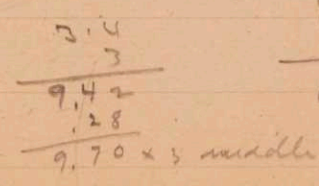 3.4
3
9.42
.28
9.70 × 3 middle